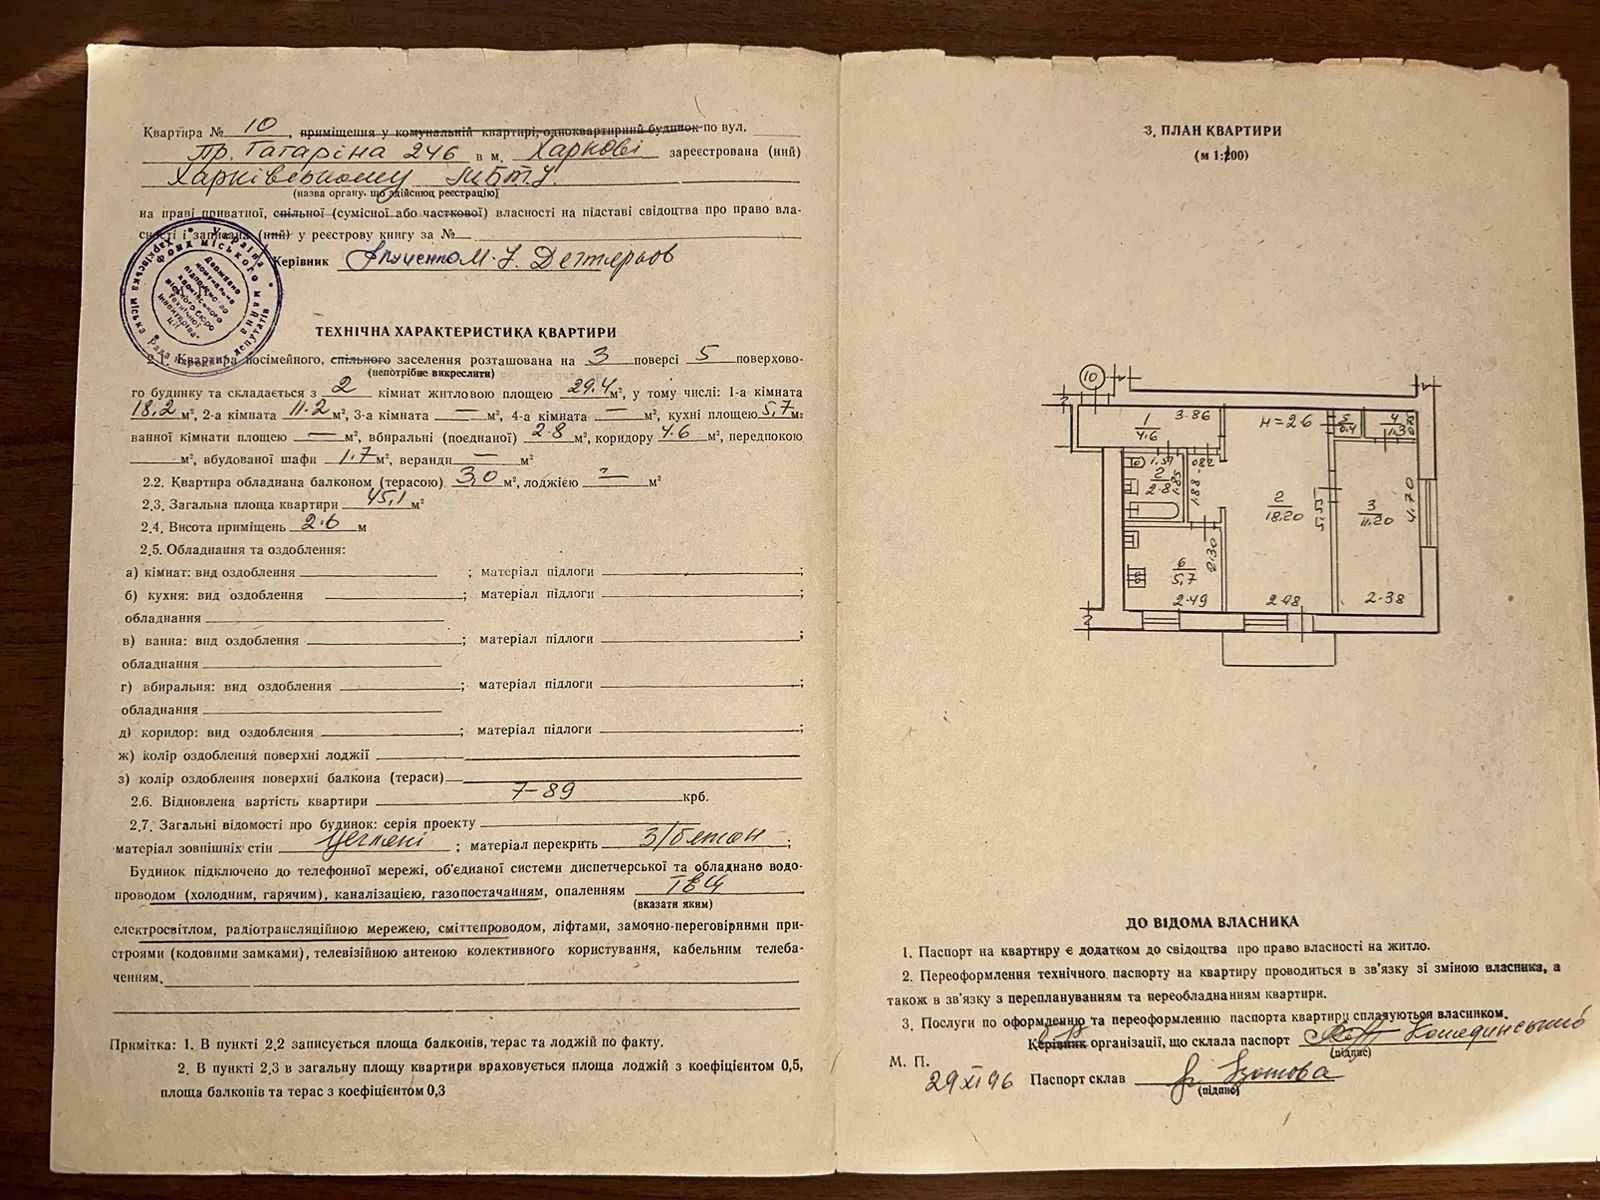 Квартира № 10, приміщення у комунальній квартирі, одноквартирний будинок по вул.
пр. Гагаріна 246 в м. Харкові зареєстрована (ний)
Харківському МБТІ.
(назва органу, що здійснює реєстрацію)
на праві приватної, спільної (сумісної або часткової) власності на підставі свідоцтва про право вла-
сності і записана (ний) у реєстрову книгу за №
Керівник
ТЕХНІЧНА ХАРАКТЕРИСТИКА КВАРТИРИ
2.1. Квартира посімейного, спільного заселення розташована на 3 поверсі 5 поверхово-
(непотрібне викреслити)
го будинку та складається з 2 кімнат житловою площею 29.4 м², у тому числі: 1-а кімната
18,2 м², 2-а кімната 11.2 м², 3-а кімната — м², 4-а кімната — м², кухні площею 5,7 м²
ванної кімнати площею — м², вбиральні (поєднаної) 2.8 м², коридору 4.6 м², передпокою
м², вбудованої шафи 1.7 м², веранди — м²
2.2. Квартира обладнана балконом (терасою) 3,0 м², лоджією — м²
2.3. Загальна площа квартири 45,1 м²
2.4. Висота приміщень 2.6 м
2.5. Обладнання та оздоблення:
а) кімнат: вид оздоблення ; матеріал підлоги ;
б) кухня: вид оздоблення ; матеріал підлоги ;
обладнання
в) ванна: вид оздоблення ; матеріал підлоги ;
обладнання
г) вбиральня: вид оздоблення ; матеріал підлоги ;
обладнання
д) коридор: вид оздоблення ; матеріал підлоги ;
ж) колір оздоблення поверхні лоджії
з) колір оздоблення поверхні балкона (тераси)
2.6. Відновлена вартість квартири 7-89 крб.
2.7. Загальні відомості про будинок: серія проекту
матеріал зовнішніх стін цегляні ; матеріал перекрить З/бетон ;
Будинок підключено до телефонної мережі, об'єднаної системи диспетчерської та обладнано водо-
проводом (холодним, гарячим), каналізацією, газопостачанням, опаленням ТЕЦ
(вказати яким)
електросвітлом, радіотрансляційною мережею, сміттєпроводом, ліфтами, замочно-переговірними при-
строями (кодовими замками), телевізійною антеною колективного користування, кабельним телеба-
ченням.
Примітка: 1. В пункті 2.2 записується площа балконів, терас та лоджій по факту.
2. В пункті 2.3 в загальну площу квартири враховується площа лоджій з коефіцієнтом 0,5,
площа балконів та терас з коефіцієнтом 0,3
3. ПЛАН КВАРТИРИ
(м 1:200)
10
1
4.6
3.86
н=2.6
5
0.4
4
1.3
0.75
1.57
0.82
2
2.8
1.85
1.88
2
18.20
5.55
3
11.20
4.70
6
5,7
2.30
2.49
2.98
2.38
ДО ВІДОМА ВЛАСНИКА
1. Паспорт на квартиру є додатком до свідоцтва про право власності на житло.
2. Переоформлення технічного паспорту на квартиру проводиться в зв'язку зі зміною власника, а
також в зв'язку з переплануванням та переобладнанням квартири.
3. Послуги по оформленню та переоформленню паспорта квартири сплачуються власником.
Керівник організації, що склала паспорт
(підпис)
М. П.
29 XI 96 Паспорт склав
(підпис)